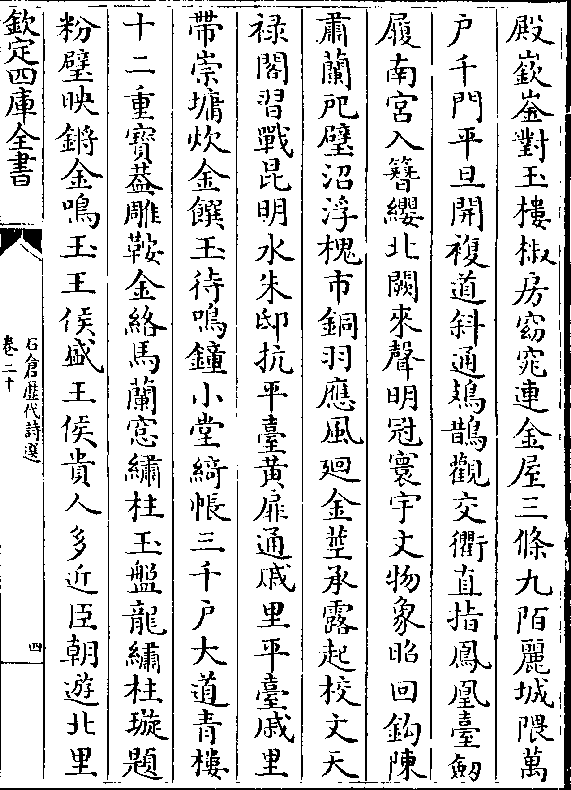 殿嶔崟對玉樓椒房窈窕連金屋三條九陌麗城隈萬
户千門平旦開複道斜通鳷鵲觀交衢直指鳳凰臺劒
履南宮入簪纓北闕來聲明冠寰宇文物象昭回鈎陳
肅蘭戺璧沼浮槐市銅羽應風廻金莖承露起校文天
禄閣習戰昆明水朱邸抗平臺黄扉通戚里平臺戚里
帶崇墉炊金饌玉待鳴鐘小堂綺帳三千户大道青樓
十二重寶葢雕鞍金絡馬蘭窻繡柱玉盤龍繡柱璇題
粉壁映鏘金鳴玉王侯盛王侯貴人多近臣朝遊北里
欽定四庫全書
石倉歴代詩選
卷二十
四